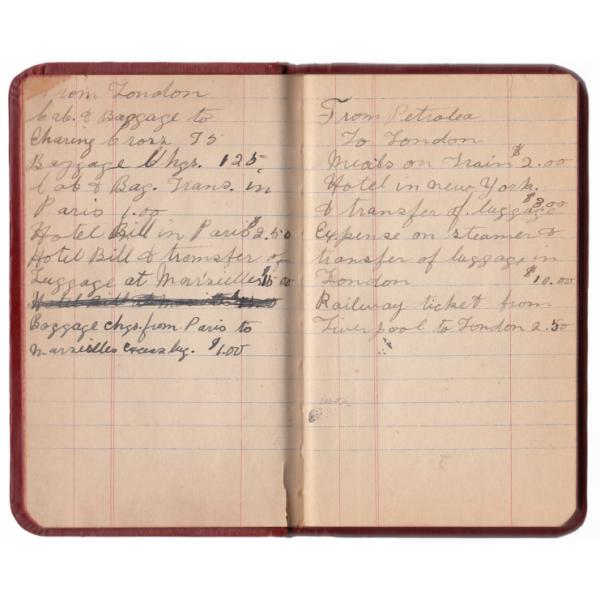 From London
Cab. & Baggage to
Charing Cross 75
Baggage Chgs. 125
Cab & Bag. Trans. in
Paris 1.00
Hotel Bill in Paris $2.50
Hotel Bill & transfer of
Luggage at Marseilles $15.00
Baggage chgs. from Paris to
Marseilles Excess lug. $1.00
From Petrolea
To London
Meals on Train $2.00
Hotel in new York.
& transfer of luggage $3.00
Expense on steamer &
transfer of luggage in
London $10.00
Railway ticket from
Liverpool to London 2.50